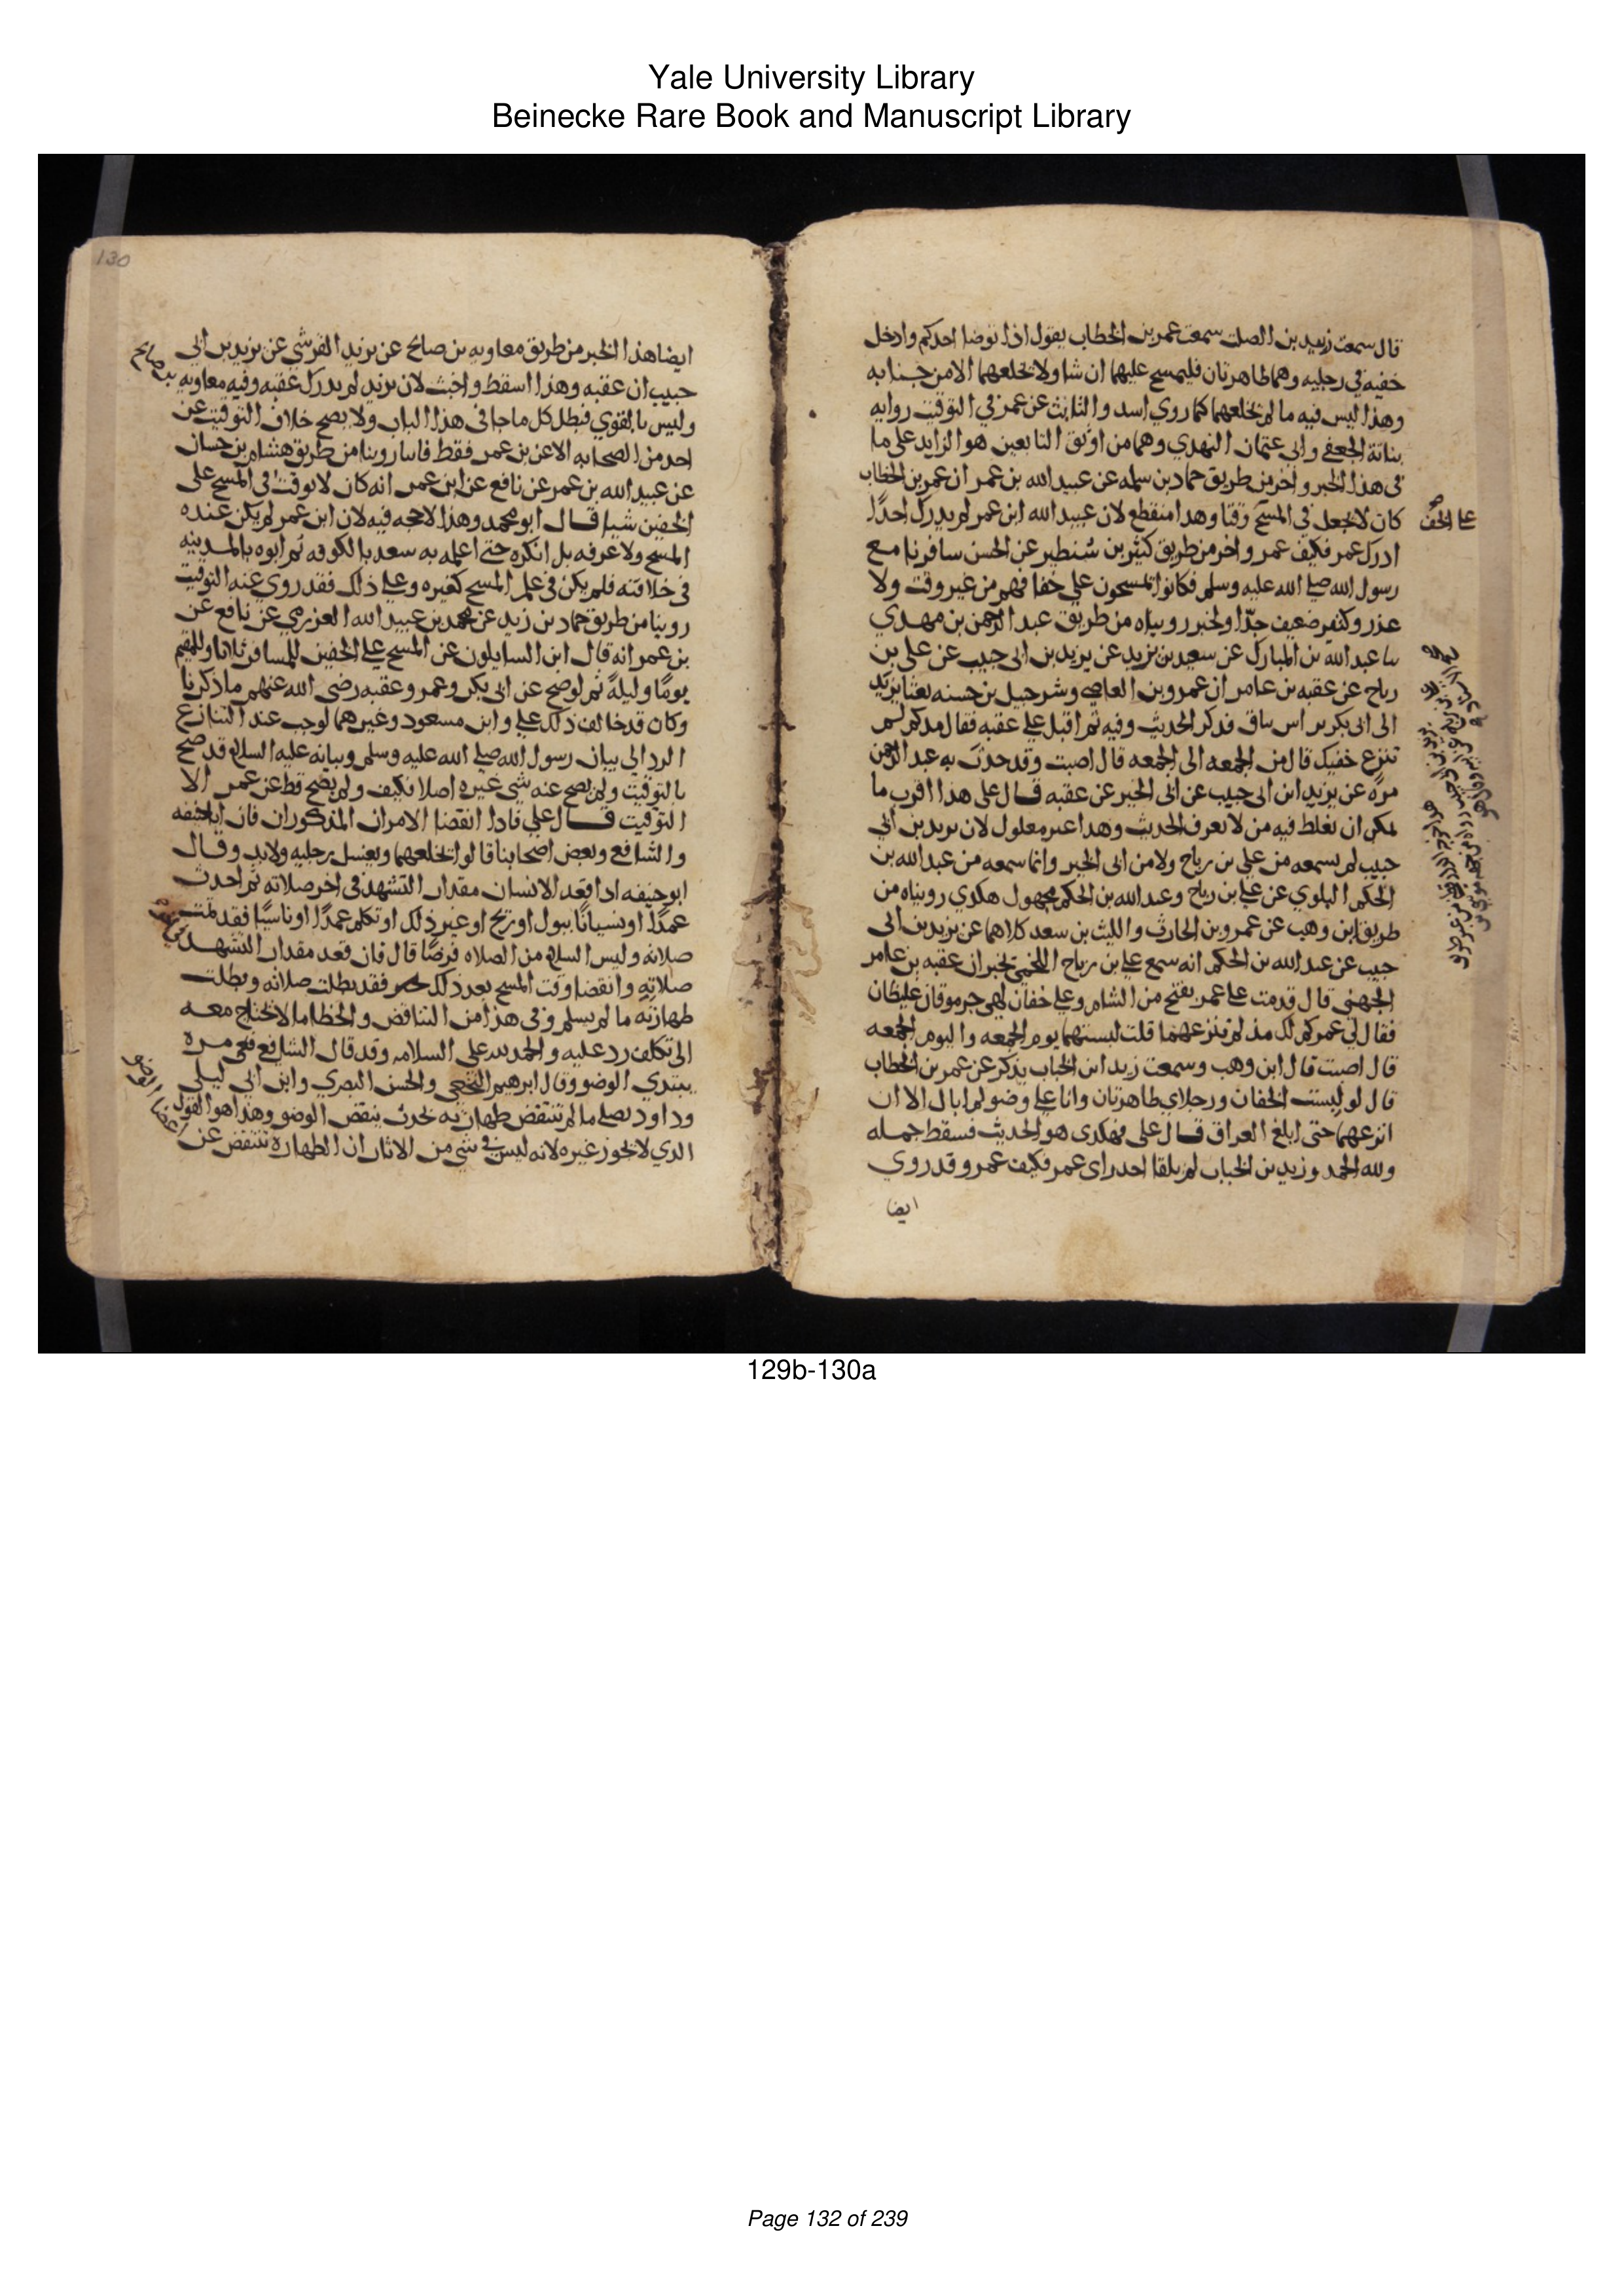 Yale University Library
Beinecke Rare Book and Manuscript Library
قال سمعت زييد بن الصلت سمعت عمر بن الخطاب يقول اذا توضا احدكم وادخل
خفيه في رجليه وهما طاهرتان فليمسح عليهما ان شا ولا يخلعهما الا من جنابه
وهذا ليس فيه ما لم يخلعهما كما روي اسد والثابت عن عمر في التوقيت روايه
بناتة الجعفي وابي عثمان النهدي وهما من اوثق التابعين هو الزايد على ما
في هذا الخبر واخر من طريق حماد بن سلمه عن عبيد الله بن عمر ان عمر بن الخطاب
كان لا يجعل في المسح وقتا وهدا منقطع لان عبيد الله ابن عمر لم يدرك احدًا
على الخف
ادرك عمر فكيف عمر واخر من طريق كثير بن شنطير عن الحسن سافرنا مع
رسول الله صلى الله عليه وسلم فكانوا يمسحون على خفافهم من غير وقت ولا
عذر وكثير ضعيف جدًّا ولخبر رويناه من طريق عبد الرحمن بن مهدي
سا عبد الله بن المبارك عن سعيد بن يزيد عن يزيد بن ابى حبيب عن على بن
رباح عن عقبه بن عامر ان عمرو بن العاصي وشرحبيل بن حسنه بعثا بريد
الى ابى بكر براس يناق فدكر الحديث وفيه ثم اقبل على عقبه فقال مدكم لم
تنزع خفيك قال من الجمعه الى الجمعه قال اصبت وقد حدث به عبد الرحمن
مرة عن يزيد ابن ابى حبيب عن ابى الخير عن عقبه قال على هذا اقرب ما
يمكن ان يغلط فيه من لا يعرف الحديث وهدا خبر معلول لان يزيد بن ابي
حبيب لم يسمعه من علي بن رباح ولا من ابى الخير وانما سمعه من عبد الله بن
الحكم البلوي عن على بن رباح وعبد الله بن الحكم مجهول هكدي رويناه من
طريق ابن وهب عن عمرو بن الحارث والليث بن سعد كلاهما عن يزيد بن ابى
حبيب عن عبد الله بن الحكم انه سمع على بن رباح اللخمي يخبر ان عقبه بن عامر
الجهني قال قدمت على عمر بفتح من الشام وعلي خفان لهى جرموقان غليظان
فقال لي عمر كم لك مذ لم تنزعهما قلت لبستهما يوم الجمعه واليوم الجمعه
قال اصبت قال ابن وهب وسمعت زيد ابن الحباب يذكر عن عمر بن الخطاب
قال لو لبست الخفان ورجلاي طاهرتان وانا على وضو لم ابال الا ان
انزعهما حتى ابلغ العراق قال على فهكدى هو الحديث فسقط جمله
ولله الحمد وزيد بن الحباب لم يلقا احد راى عمر فكيف عمر وقد روي
ايضا
130
ايضا هذا الخبر من طريق معاويه بن صالح عن يزيد القرشي عن يزيد بن ابى
حبيب ان عقبه وهذا اسقط واخبث لان يزيد لم يدرك عقبه وفيه معاويه
بن صالح
وليس بالقوي فبطل كل ما جا في هذا الباب ولا يصح خلاف التوقيت عن
احد من الصحابه الا عن بن عمر فقط فاننا روينا من طريق هشام بن حسان
عن عبيد الله بن عمر عن نافع عن ابن عمر انه كان لا يوقت في المسح على
الخفين شيا قال ابو محمد وهذا لا حجه فيه لان ابن عمر لم يكن عنده
المسح ولا عرفه بل انكره حتى اعلمه به سعد بالكوفه ثم ابوه بالمدينه
في خلافته فلم يكن في علم المسح كغيره وعلى ذلك فقد روي عنه التوقيت
روينا من طريق حماد بن زيد عن محمد بن عبيد الله العزرمي عن نافع عن
بن عمر انه قال اين السايلون عن المسح على الخفين للمسافر ثلاثا وللمقيم
يومًا وليلةً ثم لو صح عن ابى بكر وعمر وعقبه رضى الله عنهم ما ذكرنا
وكان قد خالف ذلك على وابن مسعود وغيرهما لوجب عند التنازع
الرد الى بيان رسول الله صلى الله عليه وسلم وبيانه عليه السلام قد صح
بالتوقيت ولم يصح عنه شي غيره اصلا فكيف ولم يصح قط عن عمر الا
التوقيت قال على فاذا انقضا الامران المذكوران فان ابا حنيفه
والشافعي وبعض اصحابنا قالوا يخلعهما ويغسل رجليه ولا بد وقال
ابو حنيفه ادا قعد الانسان مقدار التشهد في اخر صلاته ثم احدث
عمدًا او نسيانًا ببول او ريح او غير ذلك او تكلم عمدًا او ناسيًا فقد تمت
صلاته وليس السلام من الصلاه فرضًا قال فان قعد مقدار التشهد
صلاته وانقضا وقت المسح بعد ذلك فقد بطلت صلاته وبطلت
طهارته ما لم يسلم وفى هذا من التناقض والخطا ما لا يحتاج معه
الى تكلف رد عليه والحمد لله على السلامه وقد قال الشافعي مره
يبتدي الوضو وقال ابرهيم النخعي والحسن البصري وابن ابي ليلى
وداود يصلى ما لم تنتقض طهارته بحدث ينقض الوضو وهذا هو القول
الدي لا يجوز غيره لانه ليس في شي من الاثار ان الطهارة تنتقض عن
129b-130a
Page 132 of 239